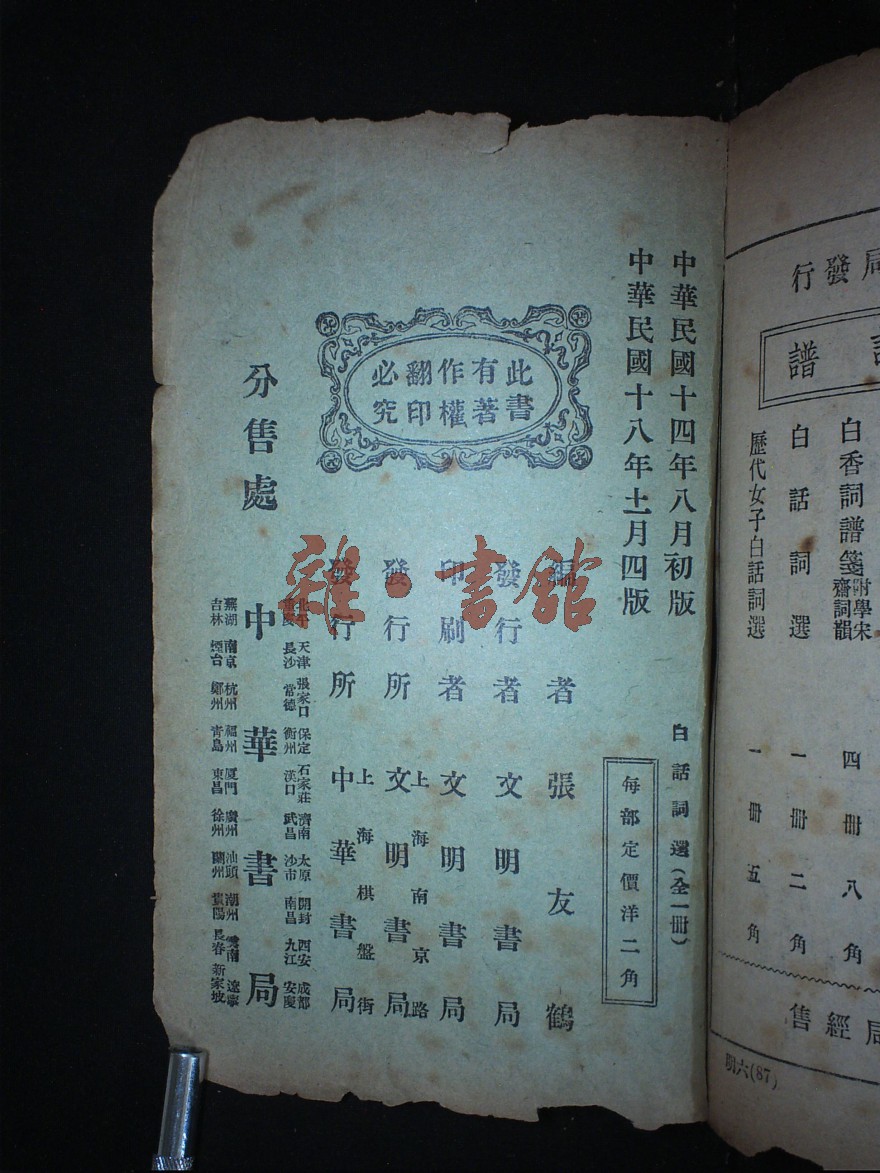 局發行
譜
白香詞譜箋附學宋齋詞韻 四冊八角
白話詞選 一冊二角
歷代女子白話詞選 一冊五角
局經售
明六(87)
中華民國十四年八月初版
中華民國十八年十一月四版
白話詞選(全一冊)
每部定價洋二角
此書
有著
作權
翻印
必究
編者 張友鶴
發行者 文明書局
印刷者 文明書局
上海南京路
發行所 文明書局
上海棋盤街
發行所 中華書局
分售處 中華書局
北平 天津 張家口 保定 石家莊 濟南 太原 開封 西安 成都
重慶 長沙 常德 衡州 漢口 武昌 沙市 南昌 九江 安慶
蕪湖 南京 杭州 福州 廈門 廣州 汕頭 潮州 雲南 遼寧
吉林 煙台 鄭州 青島 東昌 徐州 蘭州 貴陽 長春 新家坡
雜·書館